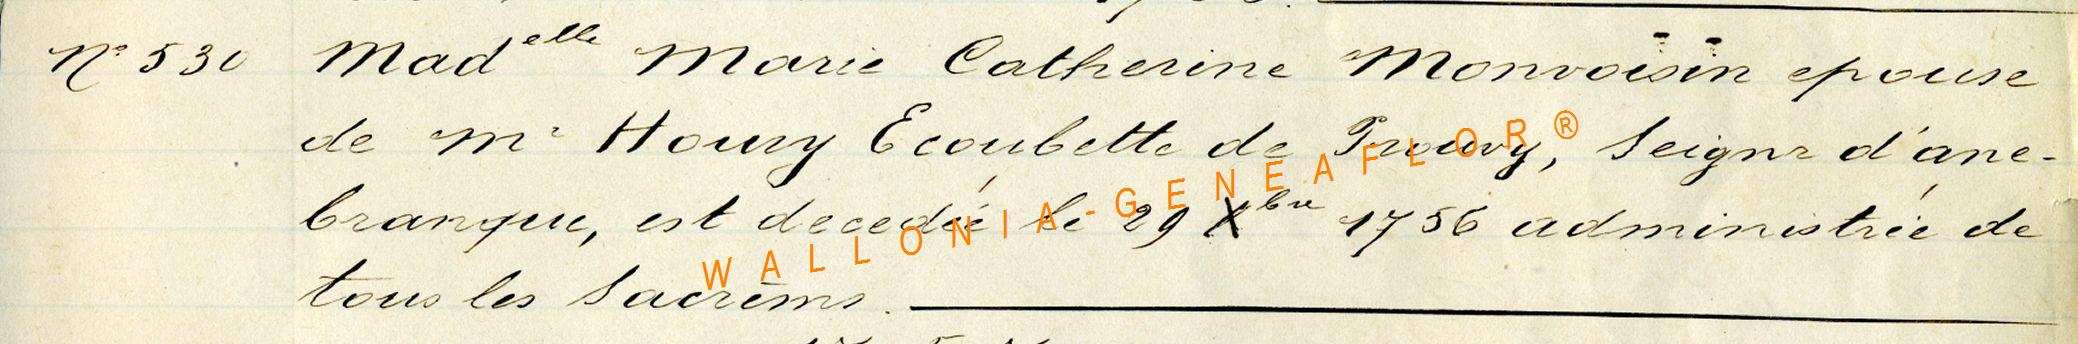 N° 530 Madelle Marie Catherine Monvoisin epouse
de Mr Houry Ecoubette de Prouvy, Seignr d'ane-
branque, est decedée le 29 Xbre 1756 administrée de
tous les Sacrèms.
WALLONIA-GENEAFLOR®